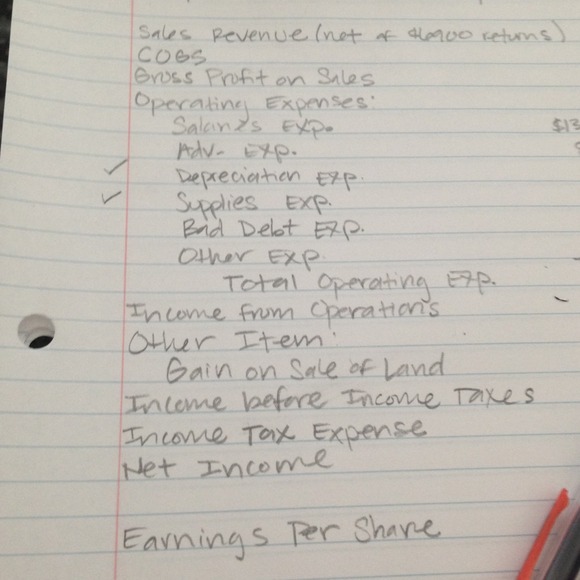 Sales Revenue (net of returns)
COGS
Gross Profit on Sales
Operating Expenses:
Salaries Exp. $13
Adv. Exp.
Depreciation Exp.
Supplies Exp.
Bad Debt Exp.
Other Exp.
Total Operating Exp.
Income from Operations
Other Item:
Gain on Sale of Land
Income before Income Taxes
Income Tax Expense
Net Income
Earnings Per Share